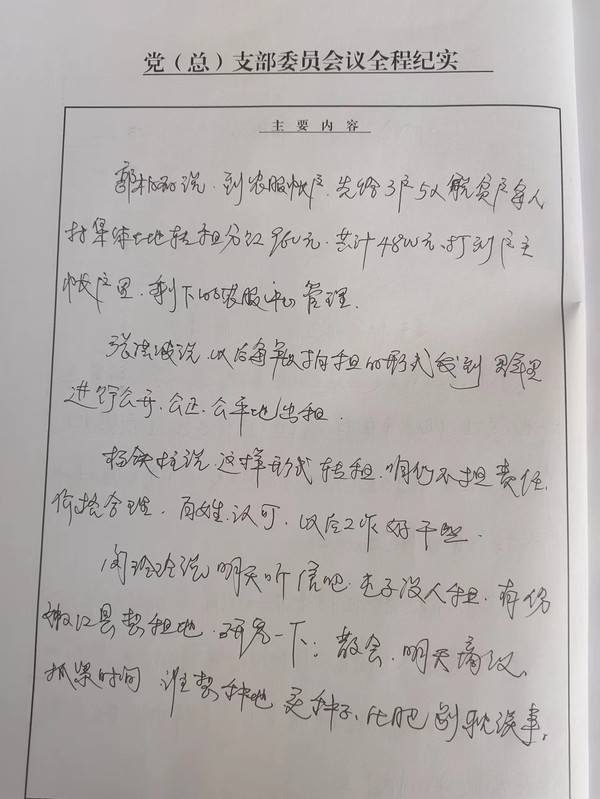 党（总）支部委员会议全程纪实
主要内容
说，到农服帐户，先给3户5人脱贫户每人
村集体土地转租分红960元，共计4800元，打到户主
帐户里，剩下的农服中心管理。
张洪波说，以后每年以招租的形式发到群里
进行公开、公正、公平地出租。
杨铁柱说，这样形式转租，咱们不担责任，
价格合理，百姓认可，以后工作好干些。
闵玲玲说明天听信吧，屯子没人租，有份
江县要租地，研究一下；散会，明天再议，
抓紧时间 谁要种地 买种子、化肥别耽误事。